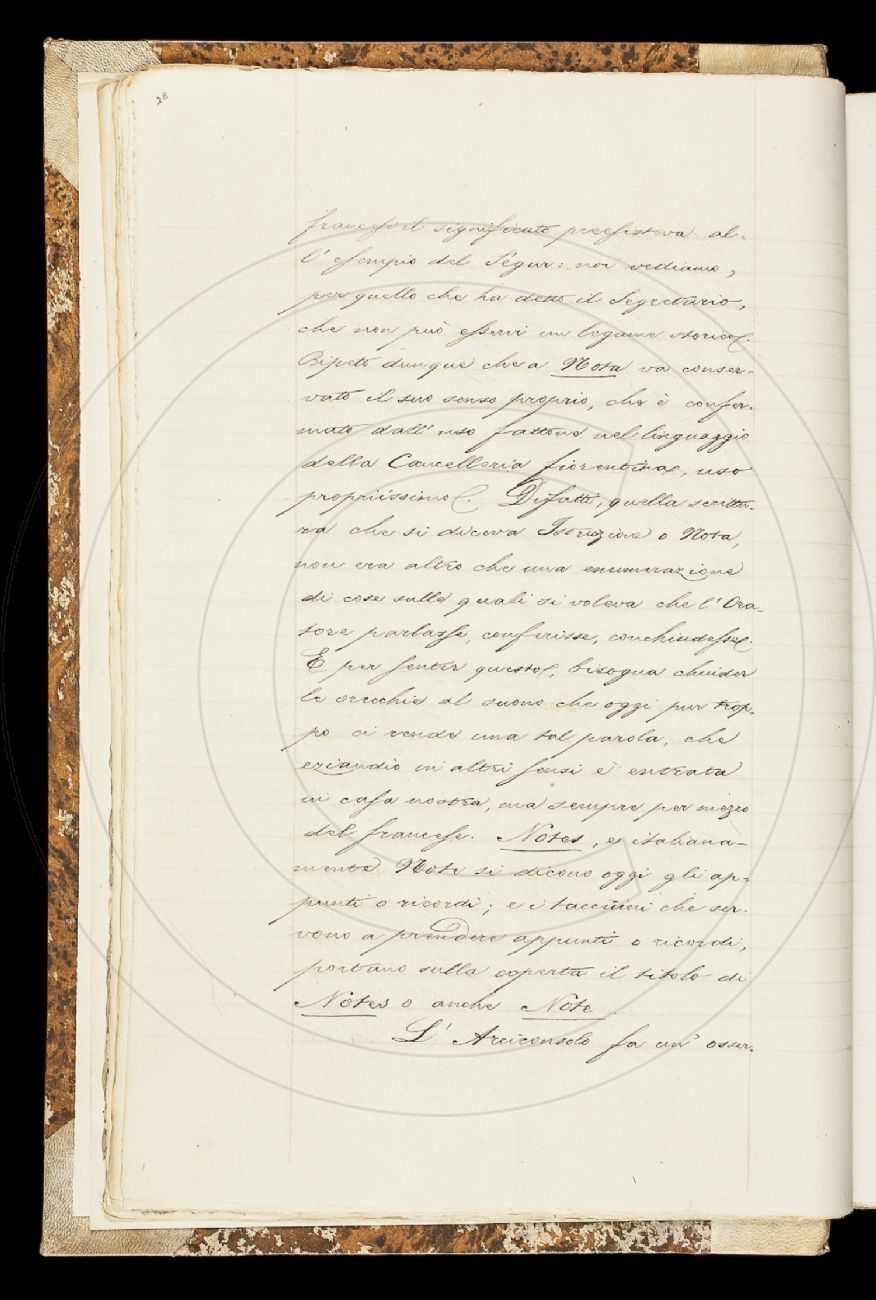 28
francese il significato preesisteva al-
l'esempio del Ségur: noi vediamo,
per quello che ha detto il Segretario,
che non può esservi un legame storico.
Ripeto dunque che a Nota va conser-
vato il suo senso proprio, che è confer-
mato dall'uso fattone nel linguaggio
della Cancelleria fiorentina, uso
propriissimo. Difatti, quella scrittu-
ra che si diceva Istruzione o Nota,
non era altro che una enumerazione
di cose sulle quali si voleva che l'Ora-
tore parlasse, conferisse, conchiudesse.
E per sentir questo, bisogna chiuder
le orecchie al suono che oggi pur trop-
po ci rende una tal parola, che
eziandio in altri sensi è entrata
in casa nostra, ma sempre per mezzo
del francese. Notes, e italiana-
mente Note si dicono oggi gli ap-
punti o ricordi; e i taccuini che ser-
vono a prendere appunti o ricordi,
portano sulla coperta il titolo di
Notes o anche Note.
L'Arciconsolo fa un' osser-